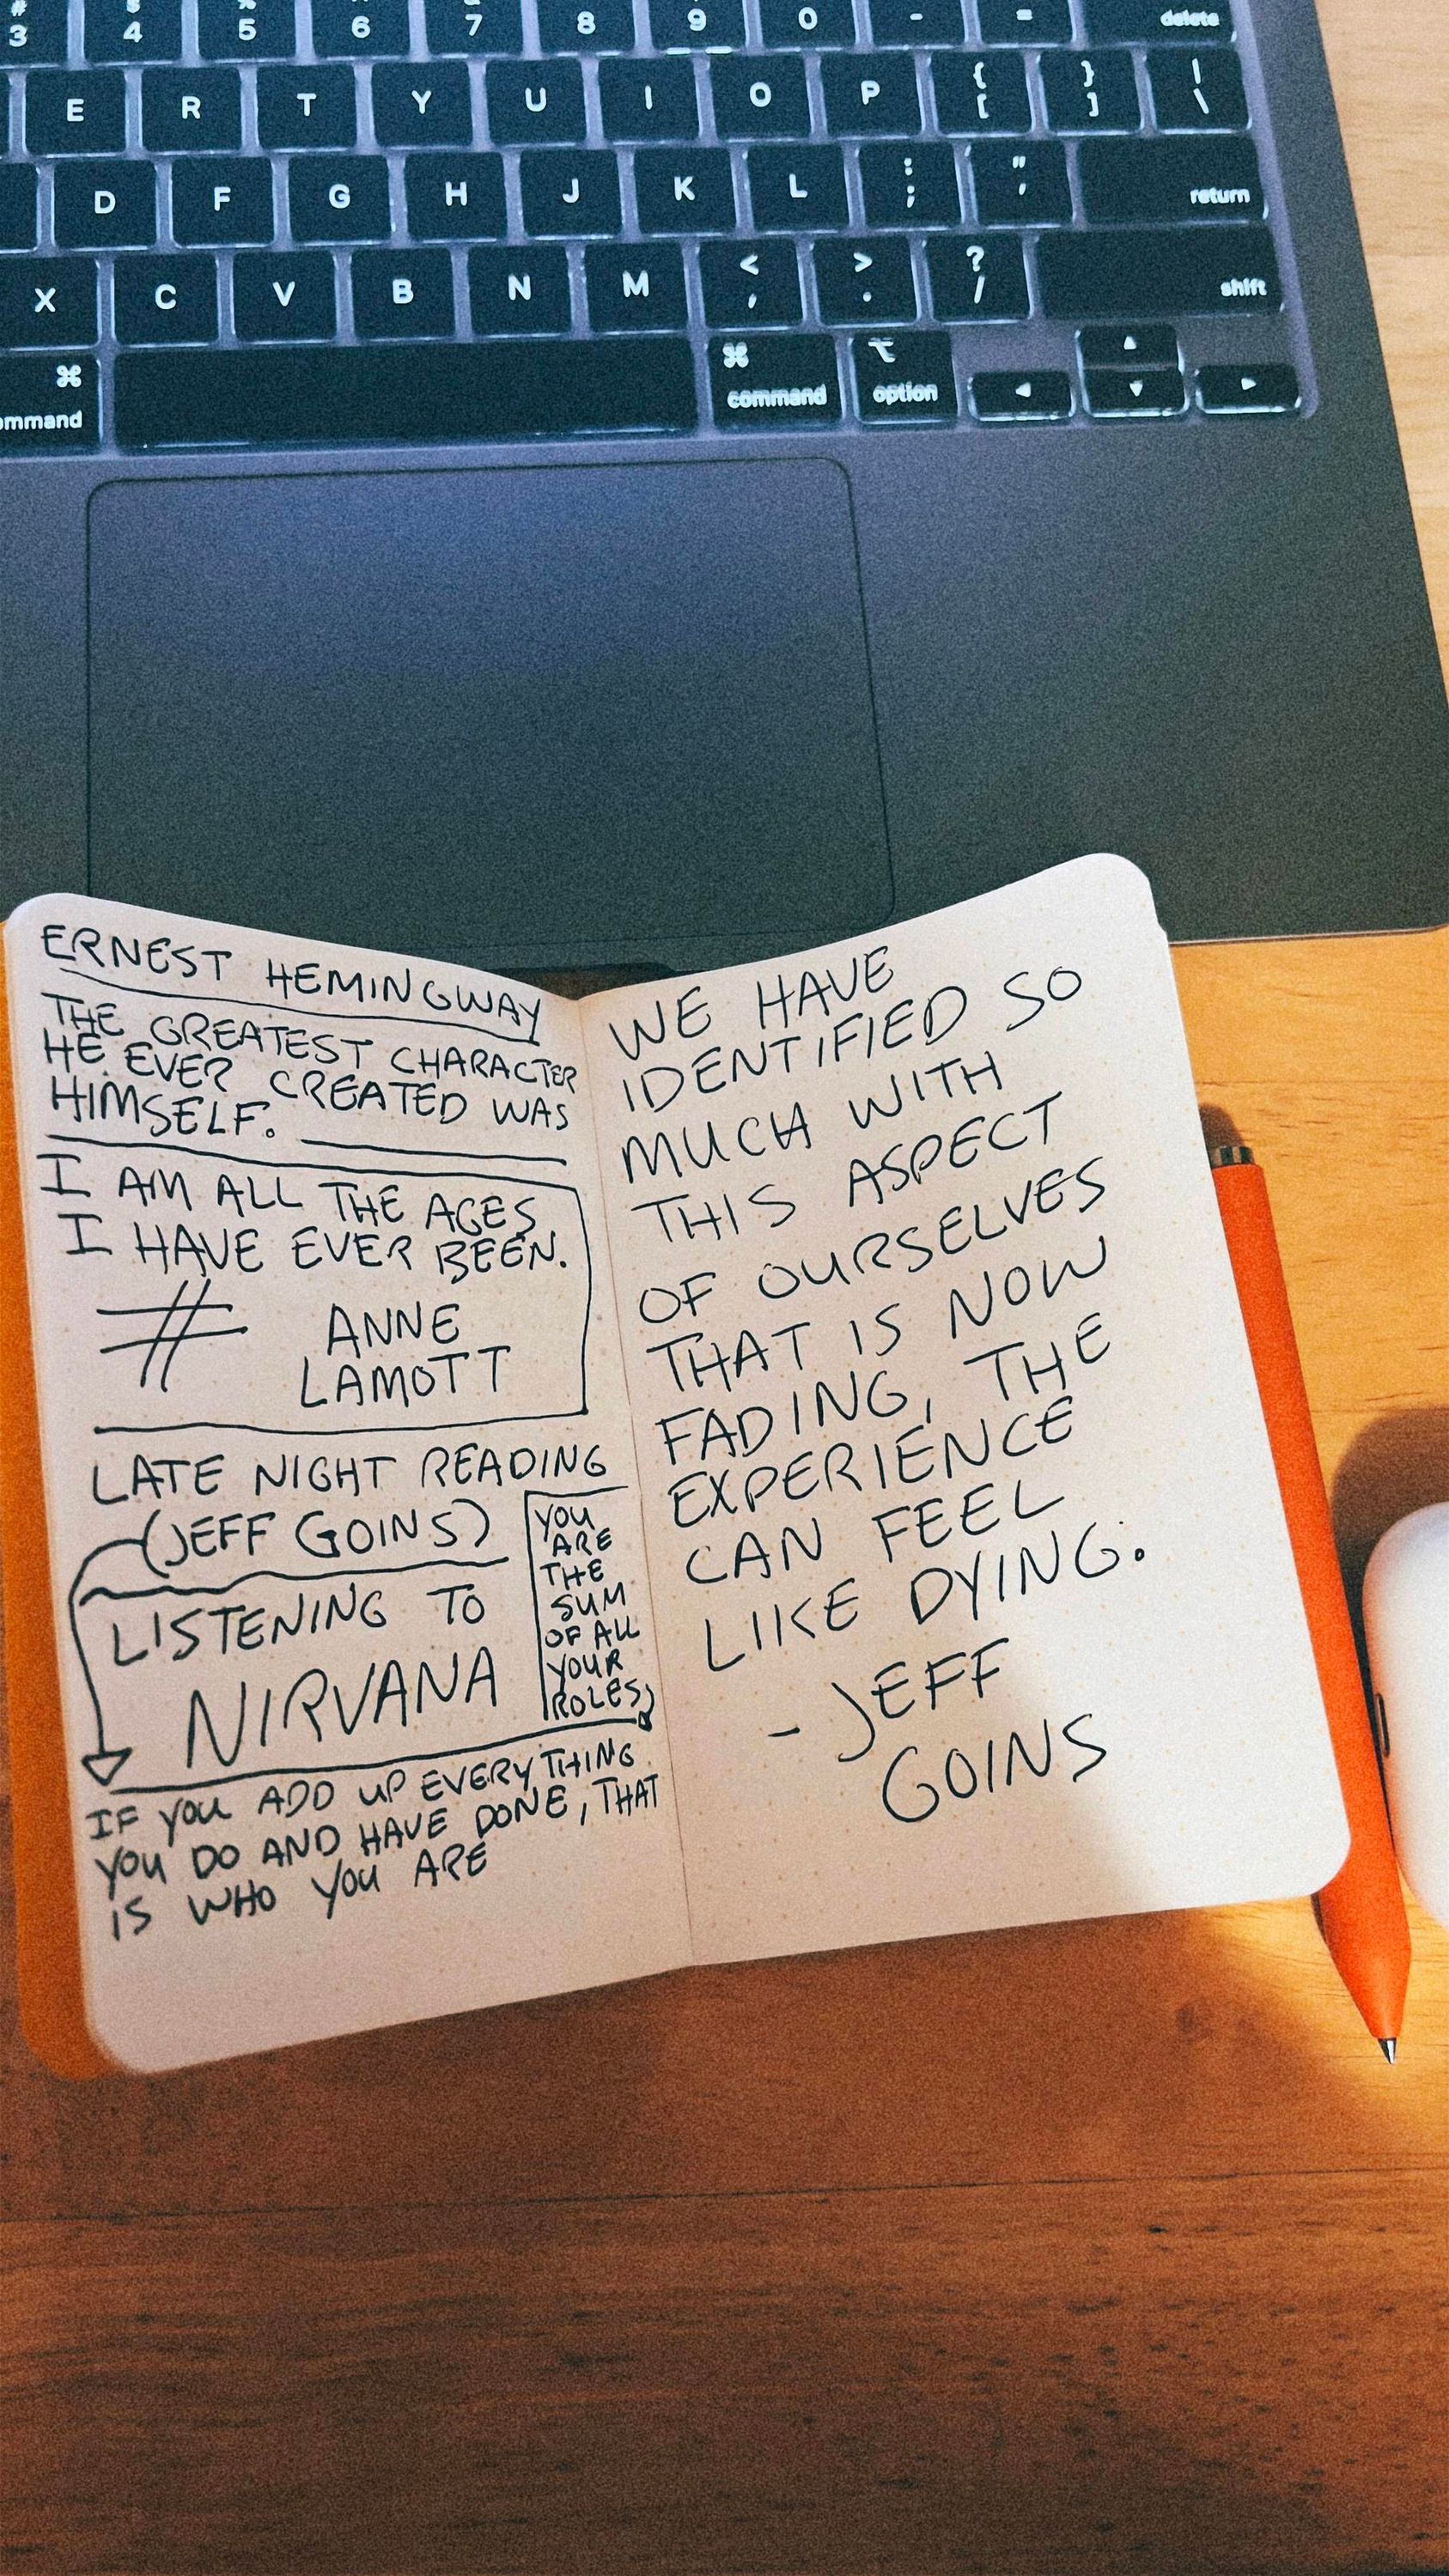 # 3 $ 4 % 5 6 & 7 8 9 0 - = delete
E R T Y U I O P { [ } ] | \
D F G H J K L : ; " ' return
X C V B N M < , > . ? / shift
⌘ ommand ⌘ command ⌥ option ◀ ▲ ▼ ▶
ERNEST HEMINGWAY
THE GREATEST CHARACTER
HE EVER CREATED WAS
HIMSELF.
I AM ALL THE AGES
I HAVE EVER BEEN.
# ANNE
LAMOTT
LATE NIGHT READING
(JEFF GOINS)
LISTENING TO
NIRVANA
YOU
ARE
THE
SUM
OF ALL
YOUR
ROLES
IF YOU ADD UP EVERYTHING
YOU DO AND HAVE DONE, THAT
IS WHO YOU ARE
WE HAVE
IDENTIFIED SO
MUCH WITH
THIS ASPECT
OF OURSELVES
THAT IS NOW
FADING, THE
EXPERIENCE
CAN FEEL
LIKE DYING.
- JEFF
GOINS